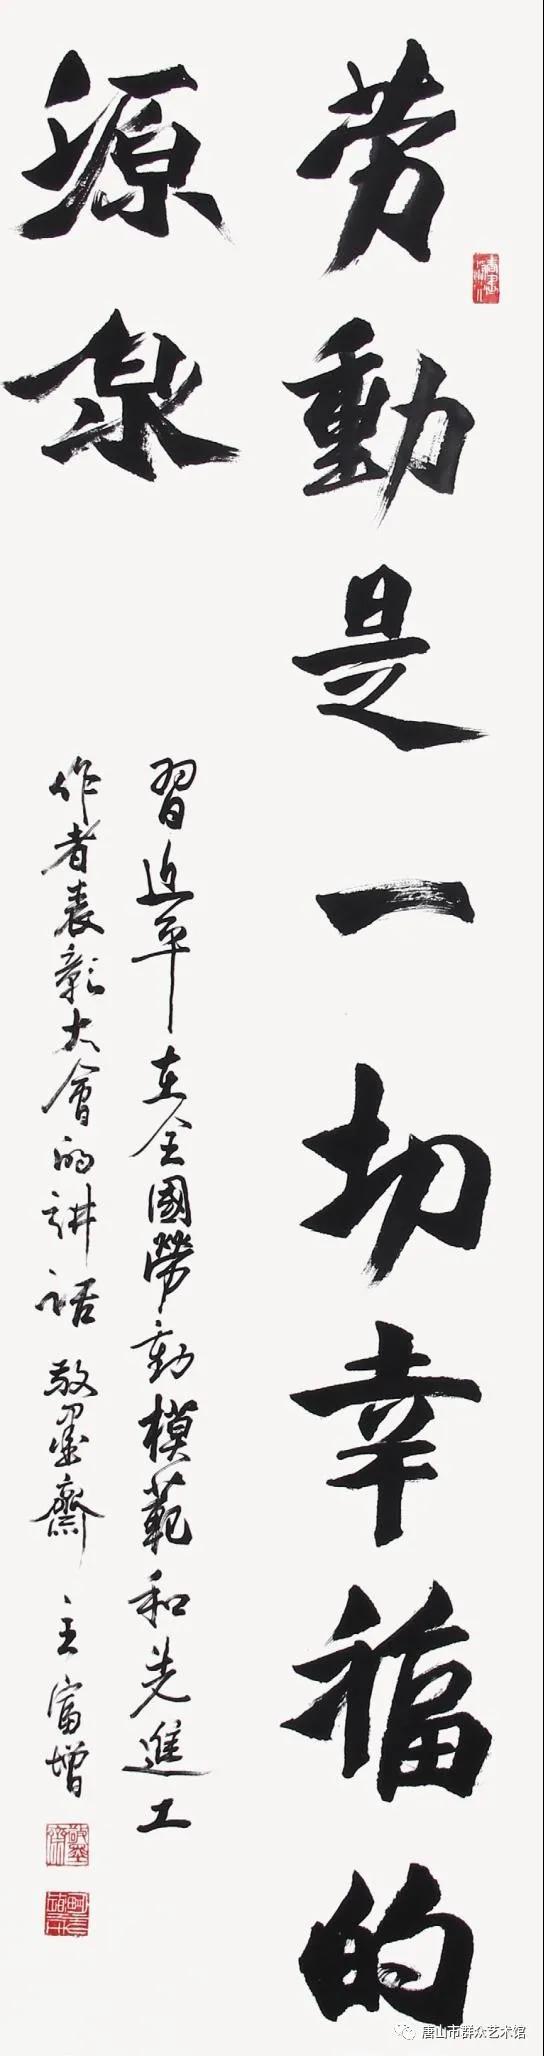 劳動是一切幸福的
源泉
習近平在全國勞動模範和先進工
作者表彰大會的讲话 敬墨齋主富增
唐山市群众艺术馆